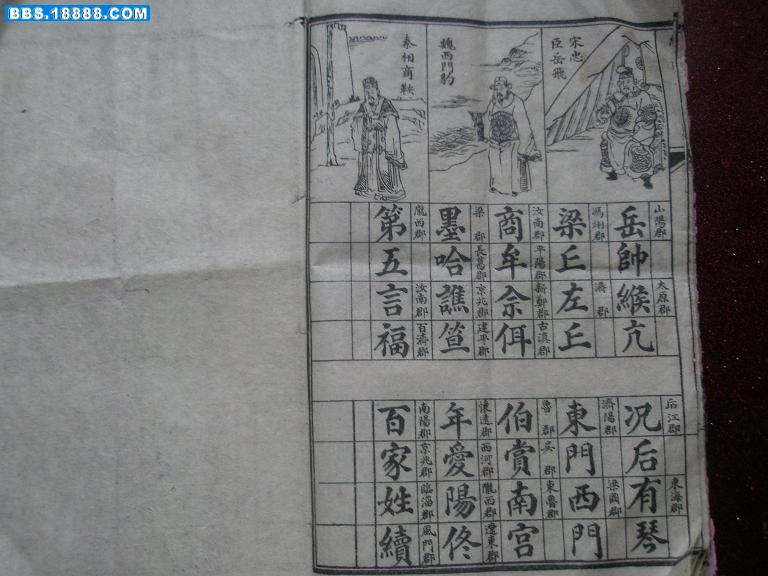 BBS.18888.COM
宋忠
臣岳飛
魏西門豹
秦相商鞅
山陽郡
太原郡
岳帥緱亢
后江郡
東海郡
况后有琴
馮翊郡
濟郡
梁丘左丘
濟陽郡
梁國郡
東門西門
汝南郡
平陽郡
新鄭郡
古滇郡
商牟佘佴
魯郡
吳郡
東魯郡
伯賞南宮
梁郡
長葛郡
京兆郡
建平郡
墨哈譙笪
懷遠郡
西河郡
隴西郡
遼東郡
年愛陽佟
隴西郡
汝南郡
百濟郡
第五言福
南陽郡
京兆郡
臨海郡
風門郡
百家姓續